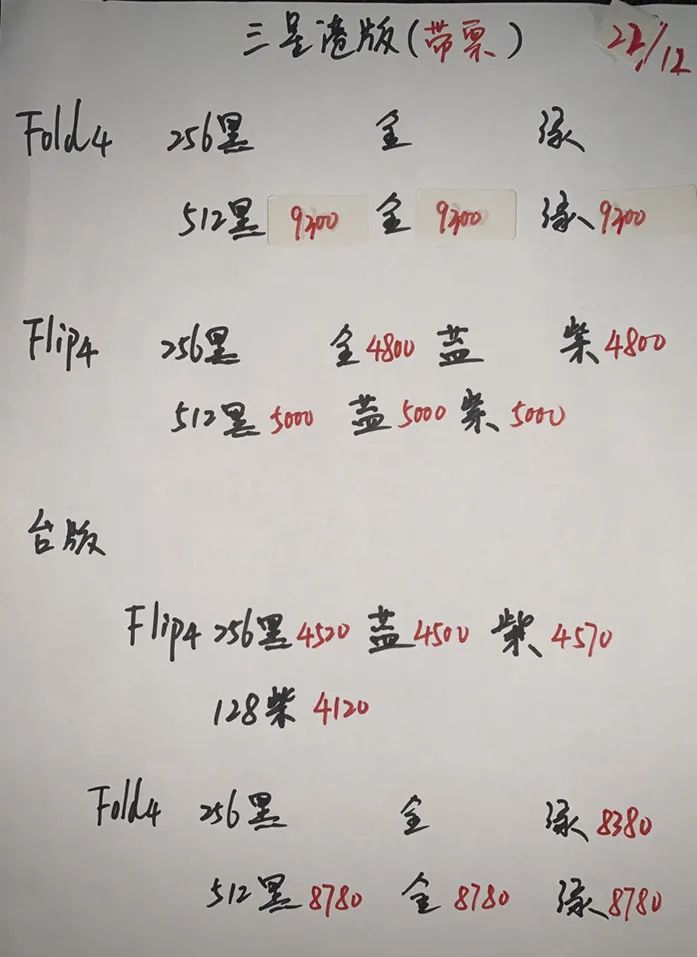 三星港版(带票) 22/12
Fold4 256黑 金 绿
512黑 9200 金 9200 绿 9200
Flip4 256黑 金 4800 蓝 紫 4800
512黑 5000 蓝 5000 紫 5000
台版
Flip4 256黑 4520 蓝 4500 紫 4570
128紫 4120
Fold4 256黑 金 绿 8380
512黑 8780 金 8780 绿 8780